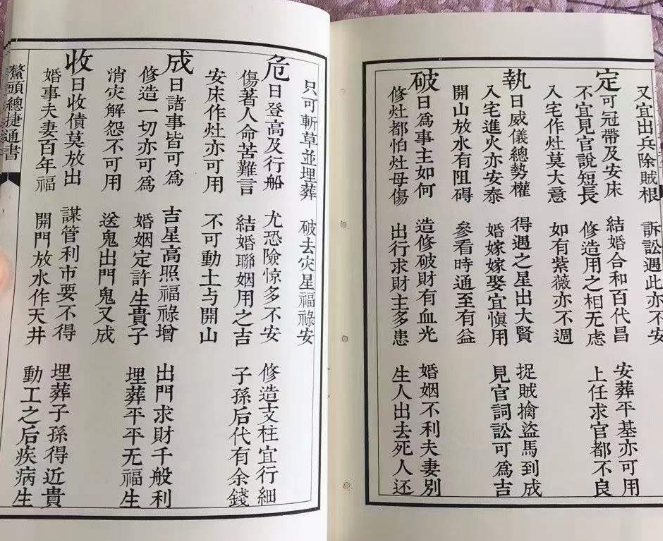 又宜出兵除賊根 訴訟遇此亦不安
定可冠帶及安床 結婚合和百代昌 安葬平基亦可用
不宜見官說短長 修造用之相无虑 上任求官都不良
入宅作灶莫大意 如有紫薇亦不遇
執日威儀總勢權 得遇之星出大賢 捉賊擒盜馬到成
入宅進火亦安泰 婚嫁嫁娶宜慎用 見官詞訟可為吉
開山放水有阻碍 參看時通至有益
破日為事主如何 造修破財有血光 婚姻不利夫妻別
修灶都怕灶母傷 出行求財主多患 生人出去死人还
只可斬草並埋葬 破去灾星福祿安
危日登高及行船 尤恐險惊多不安 修造支柱宜行細
傷著人命苦難言 結婚聯姻用之吉 子孫后代有余錢
安床作灶亦可用 不可動土与開山
成日諸事皆可為 吉星高照福祿增 出門求財千般利
修造一切亦可為 婚姻定許生貴子 埋葬平平无福生
消灾解怨不可用 送鬼出門鬼又成
收日收債莫放出 謀管利市要不得 埋葬子孫得近貴
婚事夫妻百年福 開門放水作天井 動工之后疾病生
鰲頭總捷通書